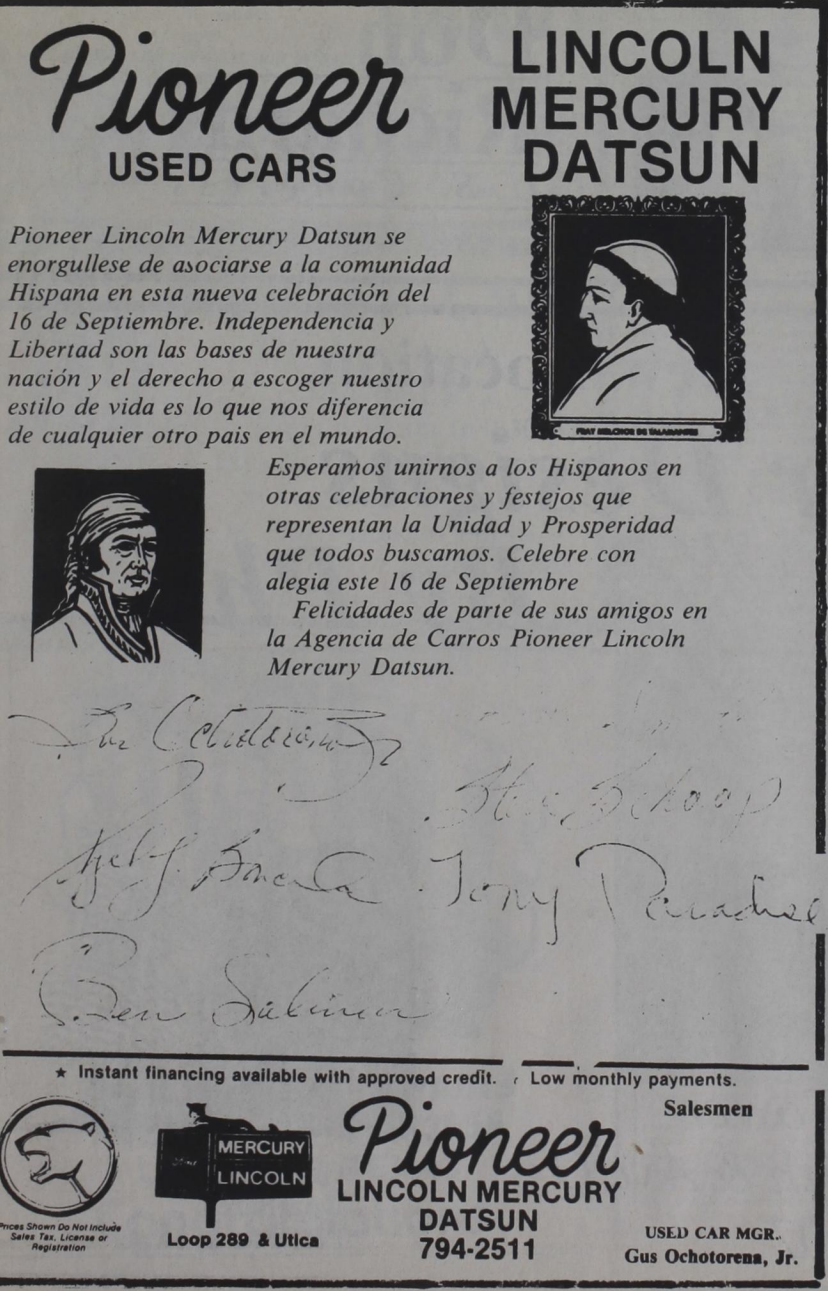 Pioneer
USED CARS
LINCOLN
MERCURY
DATSUN
Pioneer Lincoln Mercury Datsun se
enorgullese de asociarse a la comunidad
Hispana en esta nueva celebración del
16 de Septiembre. Independencia y
Libertad son las bases de nuestra
nación y el derecho a escoger nuestro
estilo de vida es lo que nos diferencia
de cualquier otro pais en el mundo.
FRAY MELCHOR DE TALAMANTES
Esperamos unirnos a los Hispanos en
otras celebraciones y festejos que
representan la Unidad y Prosperidad
que todos buscamos. Celebre con
alegia este 16 de Septiembre
Felicidades de parte de sus amigos en
la Agencia de Carros Pioneer Lincoln
Mercury Datsun.
Ochotorena Jr
Steve Schoop
Tony Paradise
Ben Salinas
★ Instant financing available with approved credit. Low monthly payments.
Prices Shown Do Not Include
Sales Tax, License or
Registration
MERCURY
LINCOLN
Loop 289 & Utica
Pioneer
LINCOLN MERCURY
DATSUN
794-2511
Salesmen
USED CAR MGR.
Gus Ochotorena, Jr.